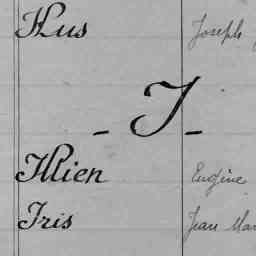 Hus Joseph
- I -
Illien Eugène
Iris Jean Mar